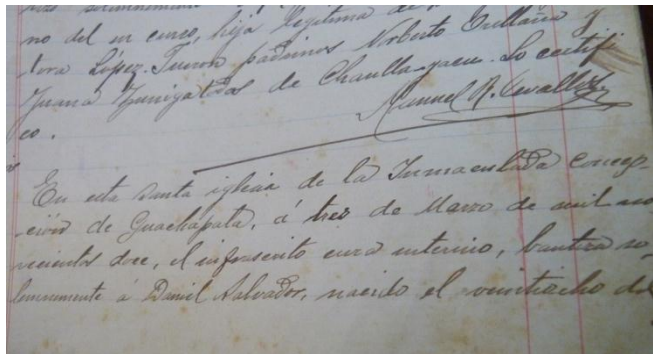 solemnemente
no del en curso, hija legítima de
tora López. Fueron padrinos Norberto Orellana y
Juana Zuniga todos de Chaulla-yacu. Lo certifi
co.
Manuel R. Cevallos
En esta santa iglesia de la Inmaculada Concep-
ción de Guachapala, á tres de Marzo de mil no
vecientos doce, el infrascrito cura interino, bautiza so-
lemnemente á Daniel Salvador, nacido el veintiocho de